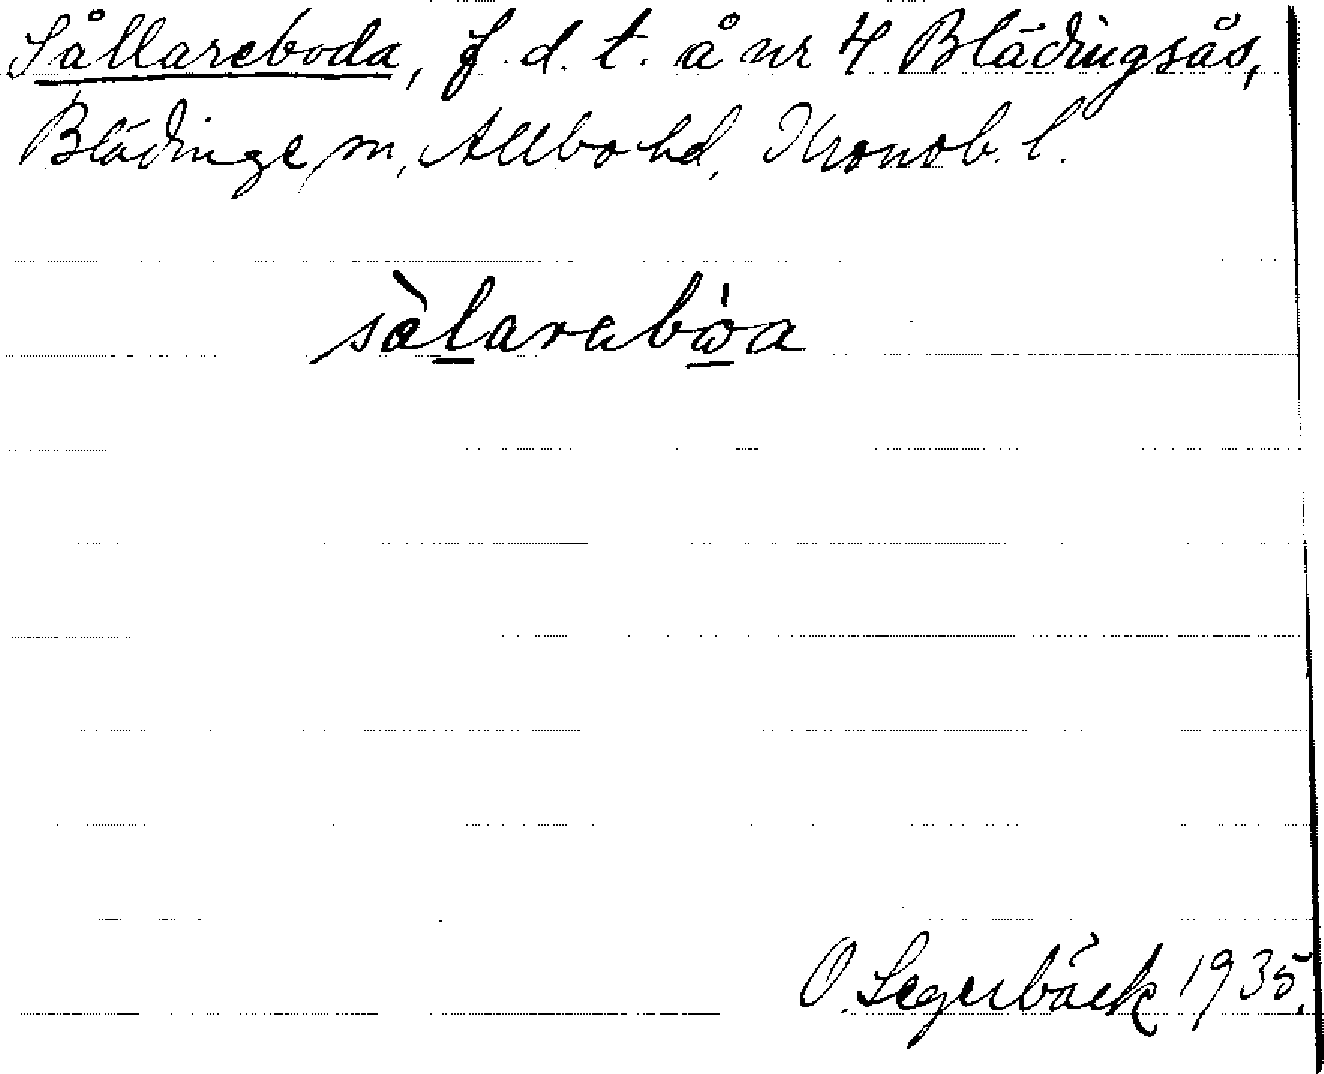 Sållareboda, f. d. t. å nr 4 Blädingsås,
Blädinge sn, Allbo hd, Kronob. l.
sàlarabòa
O. Segerbäck 1935.